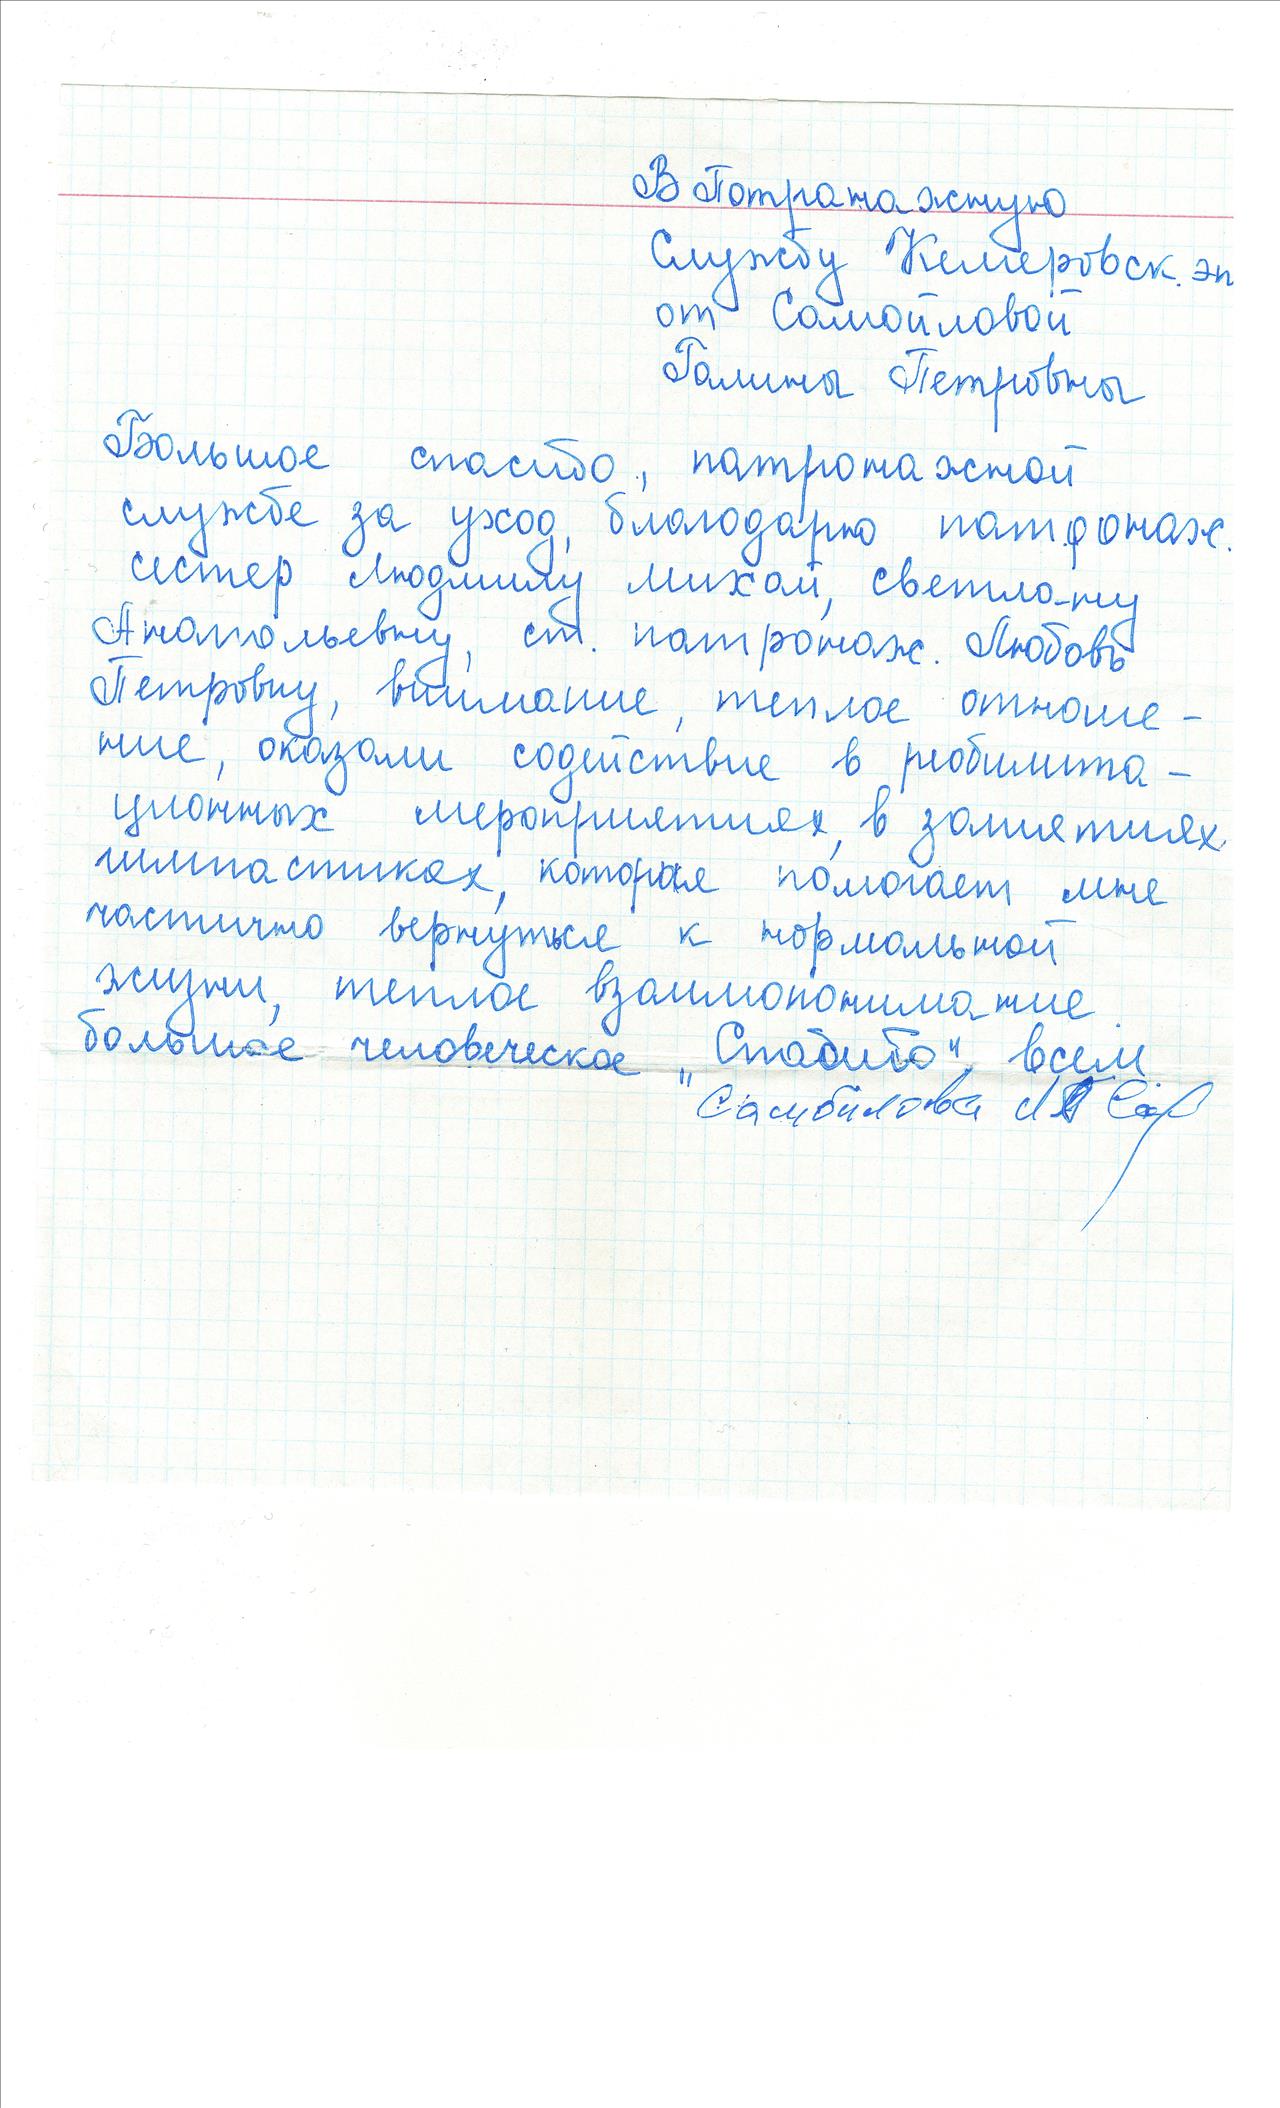 В Потранажную
Службу Кемеровск. эп
от Самойловой
Галины Петровны
Большое спасибо, патронажной
службе за уход, благодарю патронаж.
сестер Людмилу михай, светла-ну
Анатольевну, ст. патронаж. Любовь
Петровну, внимание, теплое отноше-
ние, оказали содействие в реобилита-
ционных мероприятиях, в занятиях
гимпастиках, которая помогает мне
частично вернуться к нормальной
жизни, теплое взаимопонимание.
большое человеческое „Спасибо" всем
Самойлова